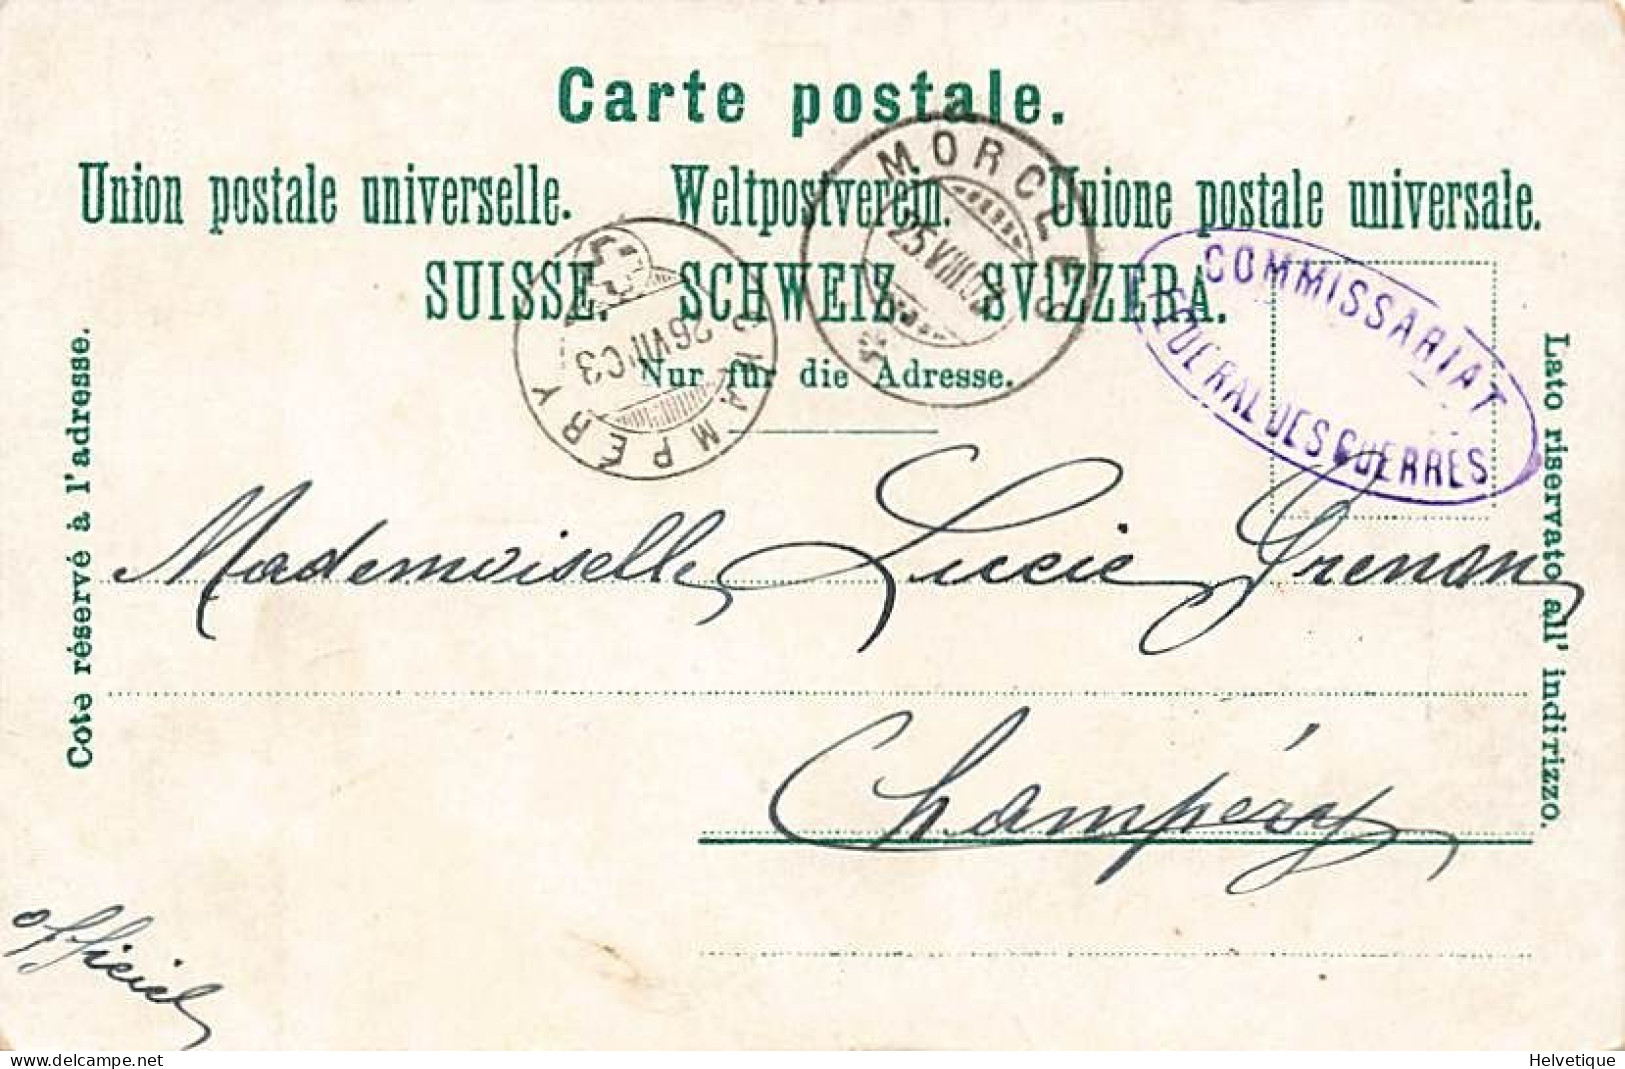 Carte postale.
Union postale universelle. Weltpostverein. Unione postale universale.
SUISSE. SCHWEIZ. SVIZZERA.
Nur für die Adresse.
Cote réservé à l'adresse.
Lato riservato all' indirizzo.
MORCLES
25 VIII 03
CHAMPÉRY
26 VIII 03
COMMISSARIAT
FÉDÉRAL DES GUERRES
Mademoiselle Lucie Grenon
Champéry
officiel
Helvetique